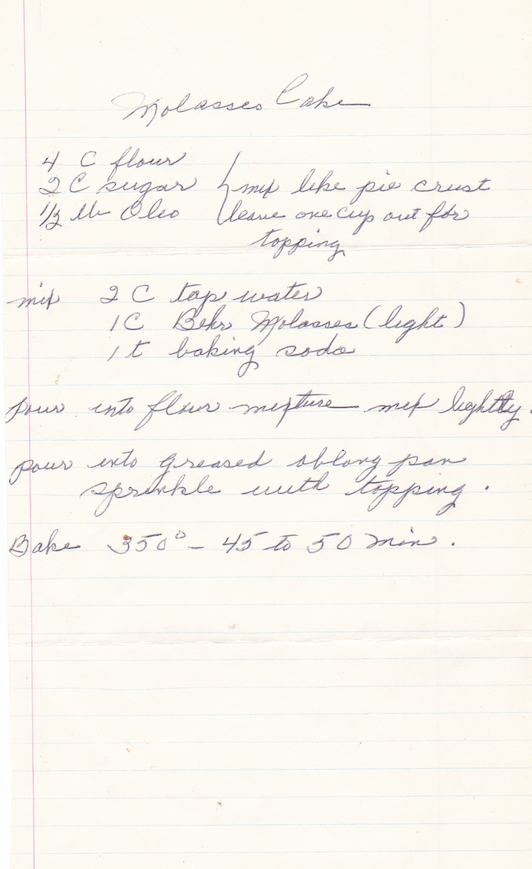 Molasses Cake
4 C flour
2 C sugar } mix like pie crust
1/2 lb Oleo leave one cup out for
topping
mix 2 C tap water
1 C Behr Molasses (light)
1 t baking soda
pour into flour mixture mix lightly.
pour into greased oblong pan
sprinkle with topping.
Bake 350° - 45 to 50 min.